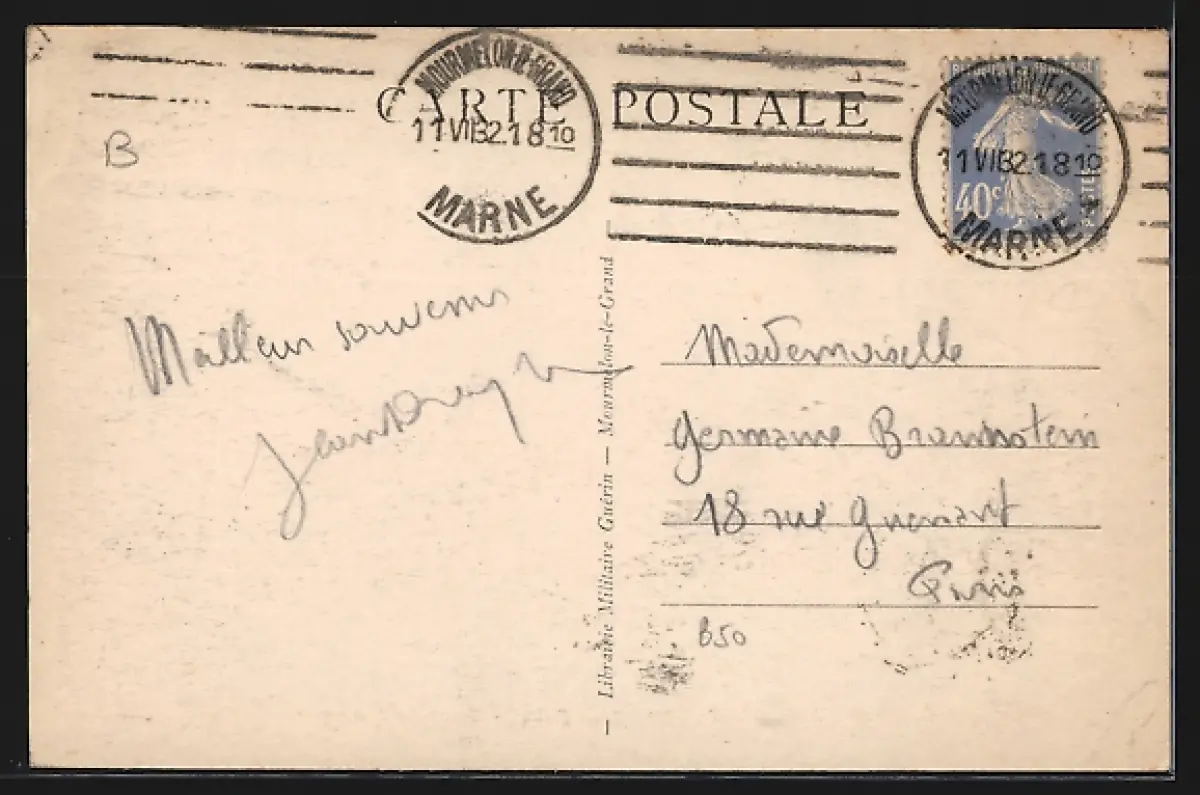 CARTE POSTALE
MOURMELON-LE-GRAND
11 VII 32. 18 10
MARNE
MOURMELON-LE-GRAND
11 VII 32. 18 10
MARNE
40c
POSTES
B
Meilleurs souvenirs
Jean
— Librairie Militaire Guérin — Mourmelon-le-Grand
Mademoiselle
Germaine Braunstein
18 rue Guersant
Paris
B50